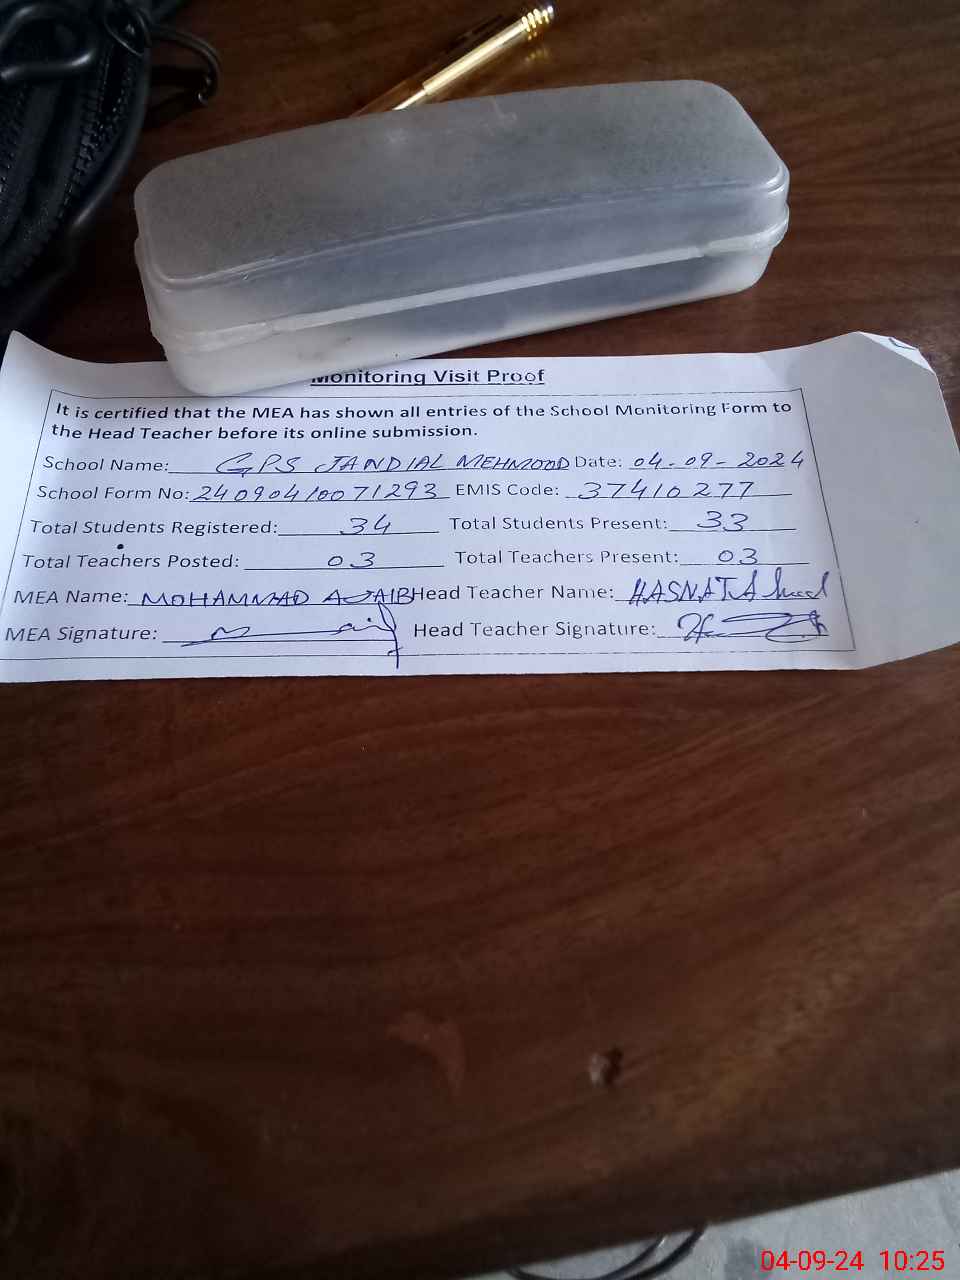 Monitoring Visit Proof
It is certified that the MEA has shown all entries of the School Monitoring Form to
the Head Teacher before its online submission.
School Name: GPS JANDIAL MEHMOOD Date: 04-09-2024
School Form No: 24090410071293 EMIS Code: 37410277
Total Students Registered: 34 Total Students Present: 33
Total Teachers Posted: 03 Total Teachers Present: 03
MEA Name: MOHAMMAD AJAIB Head Teacher Name: HASNAT Ahmed
MEA Signature: Head Teacher Signature:
04-09-24 10:25